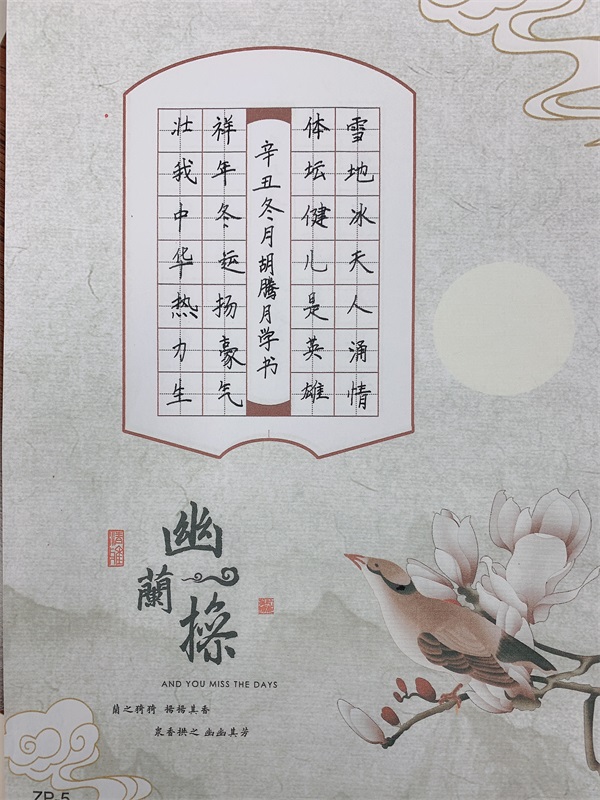 雪地冰天人涌情
体坛健儿是英雄
辛丑冬月胡腾月学书
祥年冬运扬豪气
壮我中华热力生
幽蘭操
AND YOU MISS THE DAYS
蘭之猗猗 揚揚其香
衆香拱之 幽幽其芳
ZP-5